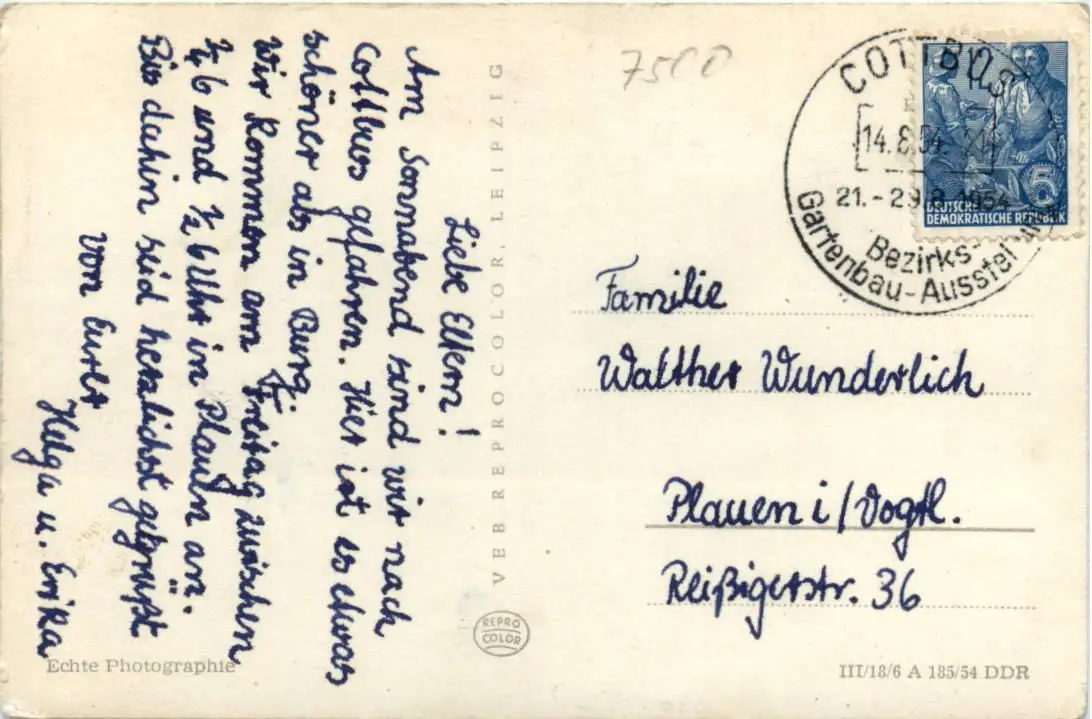 Liebe Eltern!
Am Sonnabend sind wir nach
Cottbus gefahren. Hier ist es etwas
schöner als in Burg.
Wir kommen am Freitag zwischen
½ 6 und ½ 6 Uhr in Plauen an.
Bis dahin seid herzlichst gegrüßt
von Eurer
Helga u. Erika
Echte Photographie
VEB REPROCOLOR, LEIPZIG
REPRO
COLOR
7500
COTTBUS
14.8.54.
21.-29.8.1954
Bezirks-
Gartenbau-Ausstellung
5
DEUTSCHE
DEMOKRATISCHE REPUBLIK
Familie
Walther Wunderlich
Plauen i/Vogtl.
Reißigerstr. 36
III/18/6 A 185/54 DDR